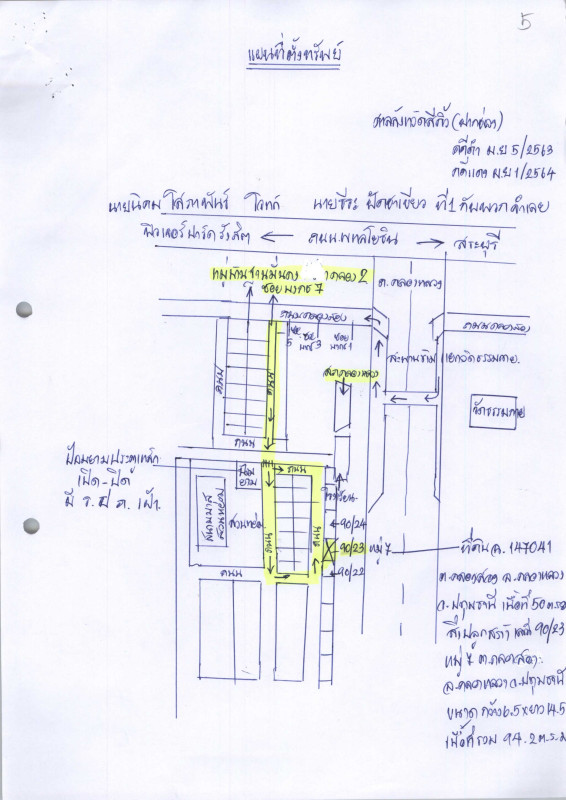 5
แผนที่ตั้งทรัพย์
ศาลจังหวัดสีคิ้ว
คดีดำ ม.ย 5/2563
คดีแดง ม.ย 1/2564
นายนิคม โสภาพันธ์ โจทก์ นายชีระ ที่ 1 กับพวก จำเลย
ฟิวเจอร์ปาร์ครังสิต ถนนพหลโยธิน สระบุรี
คลอง 2
ซอย 7
ถ.คลองหลวง
ถนนคลองสอง
ซอย 5
ซอย 3
ซอย 1
สะพานข้าม แยกวัดธรรมกาย
วัดธรรมกาย
ถนน
ถนน
ถนน
ป้อมยามประตูเหล็ก
เปิด-ปิด
มี ร.ป.ภ. เฝ้า
ป้อมยาม
ถนน
สวนหย่อม
ถนน
ถนน
90/24
90/23 หมู่ 7
90/22
ถนน
ที่ดิน ฉ. 147041
ต.คลองสอง อ.คลองหลวง
จ.ปทุมธานี เนื้อที่ 50 ต.ร.ว
สิ่งปลูกสร้าง เลขที่ 90/23
หมู่ 7 ต.คลองสอง
อ.คลองหลวง จ.ปทุมธานี
ขนาด กว้าง 6.5 x ยาว 14.5
เนื้อที่รวม 94.2 ต.ร.ม